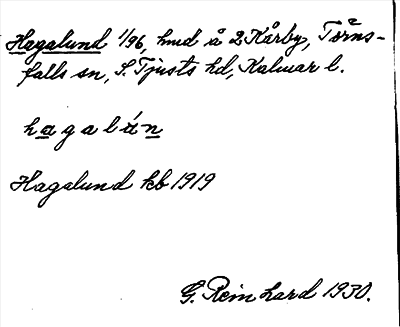 Hagalund 1/96, hmd å 2 Kårby, Törns-
falls sn, S. Tjusts hd, Kalmar l.
hagalún
Hagalund kb 1919
G. Reinhard 1930.